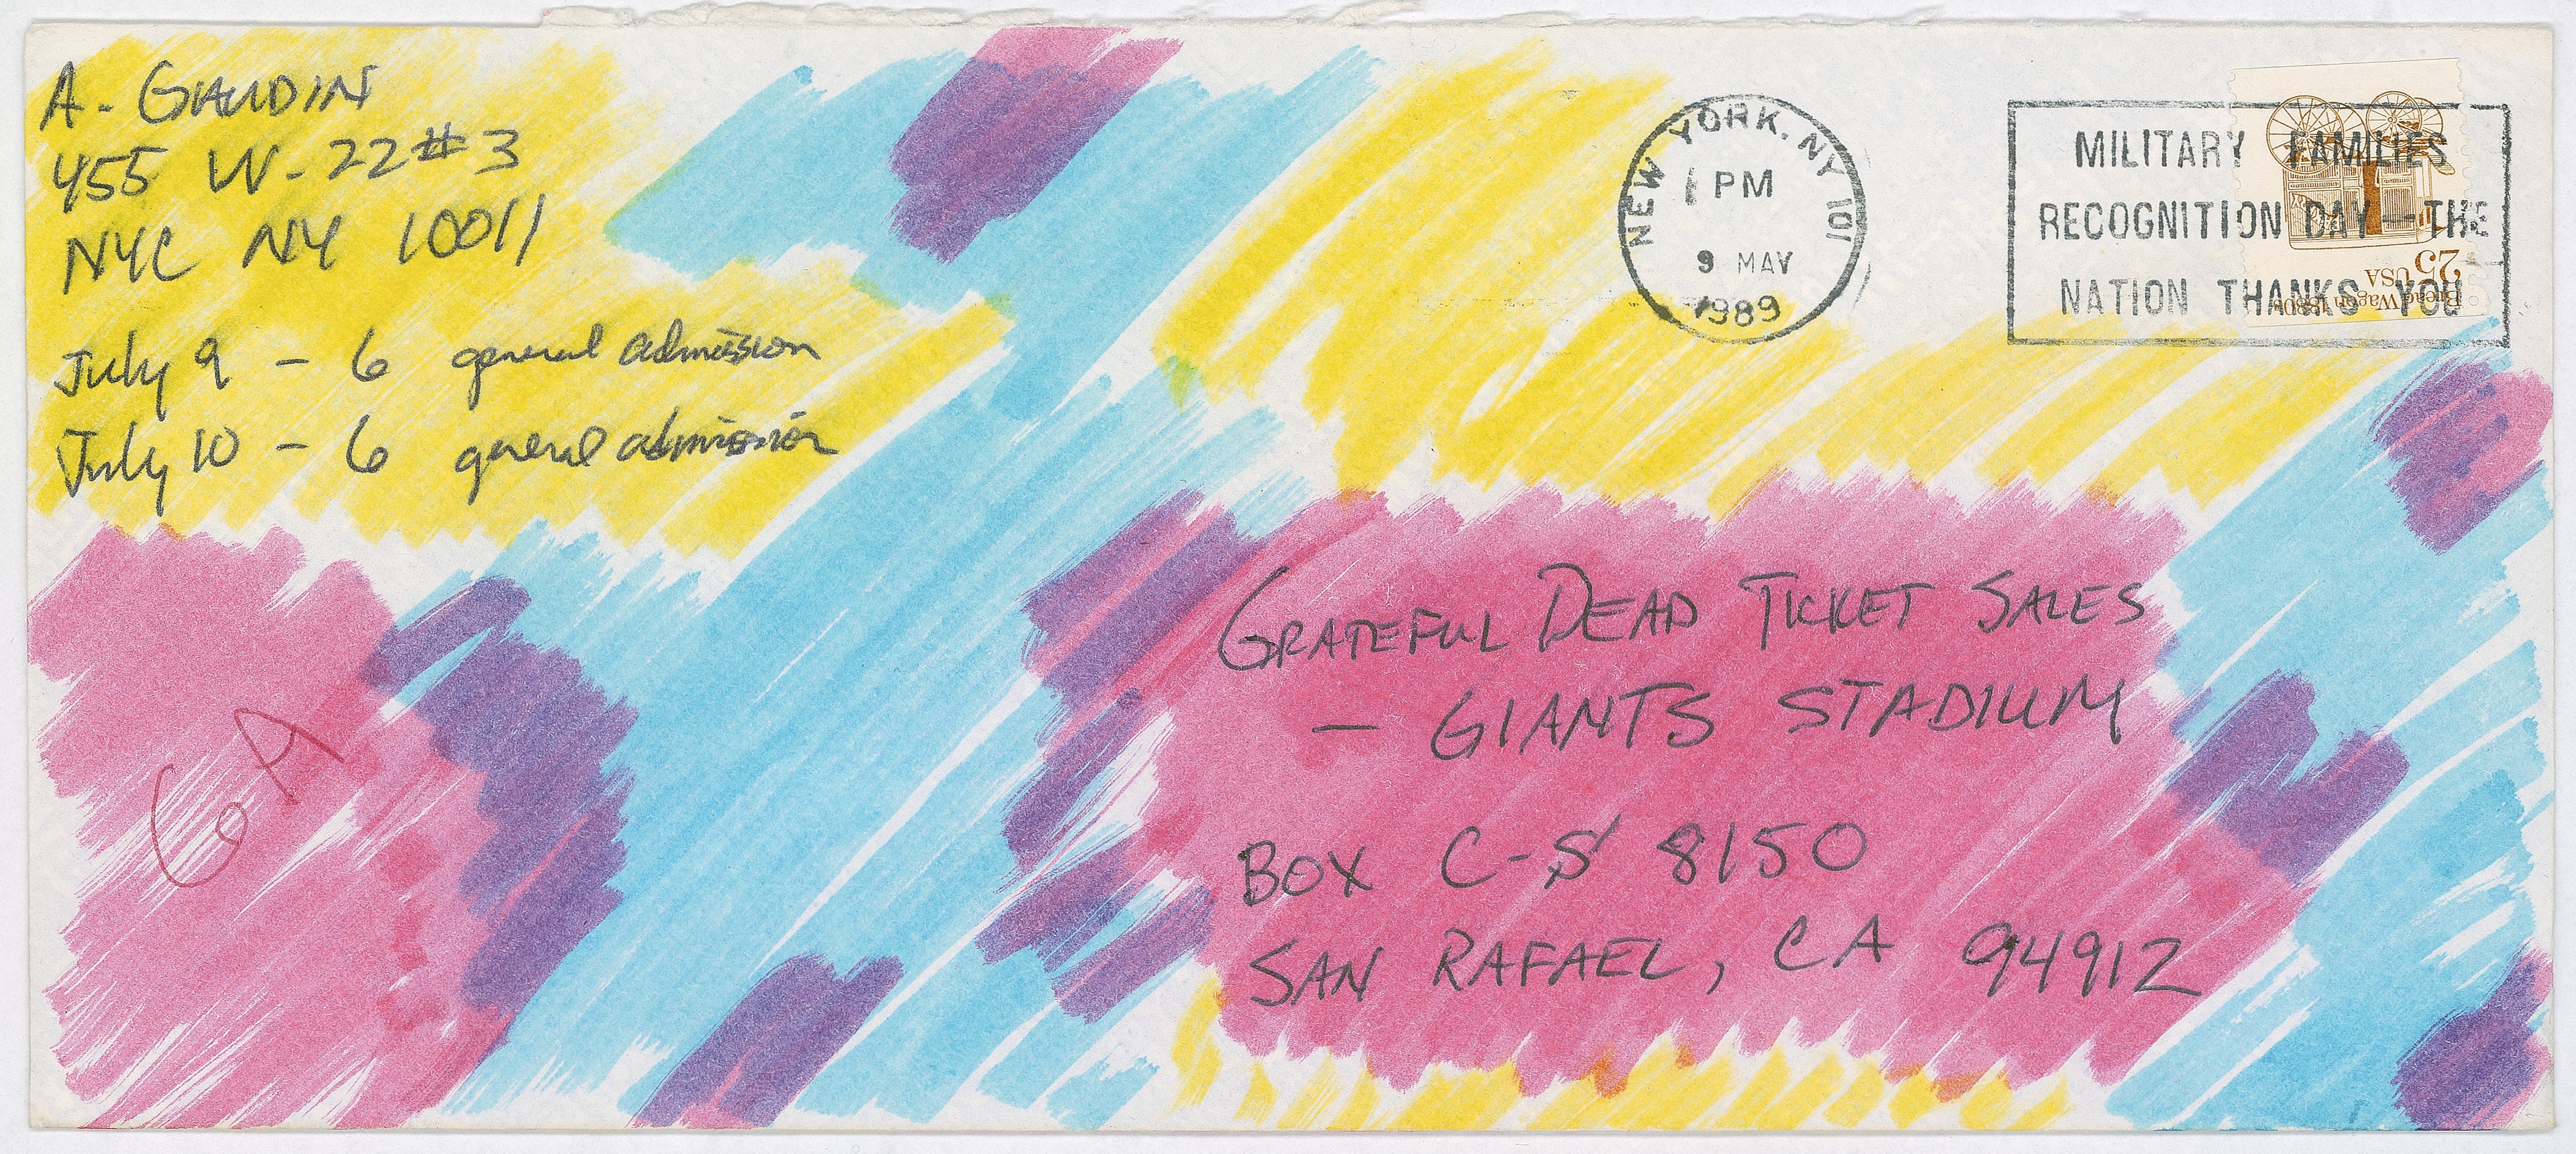 A. GAUDIN
455 W. 22 #3
NYC NY 10011
July 9 - 6 general admission
July 10 - 6 general admission
NEW YORK, NY 101
PM
9 MAY
1989
MILITARY FAMILIES
RECOGNITION DAY — THE
NATION THANKS YOU
Bread Wagon 1880s
USA
25
GRATEFUL DEAD TICKET SALES
— GIANTS STADIUM
BOX C-S 8150
SAN RAFAEL, CA 94912
GA